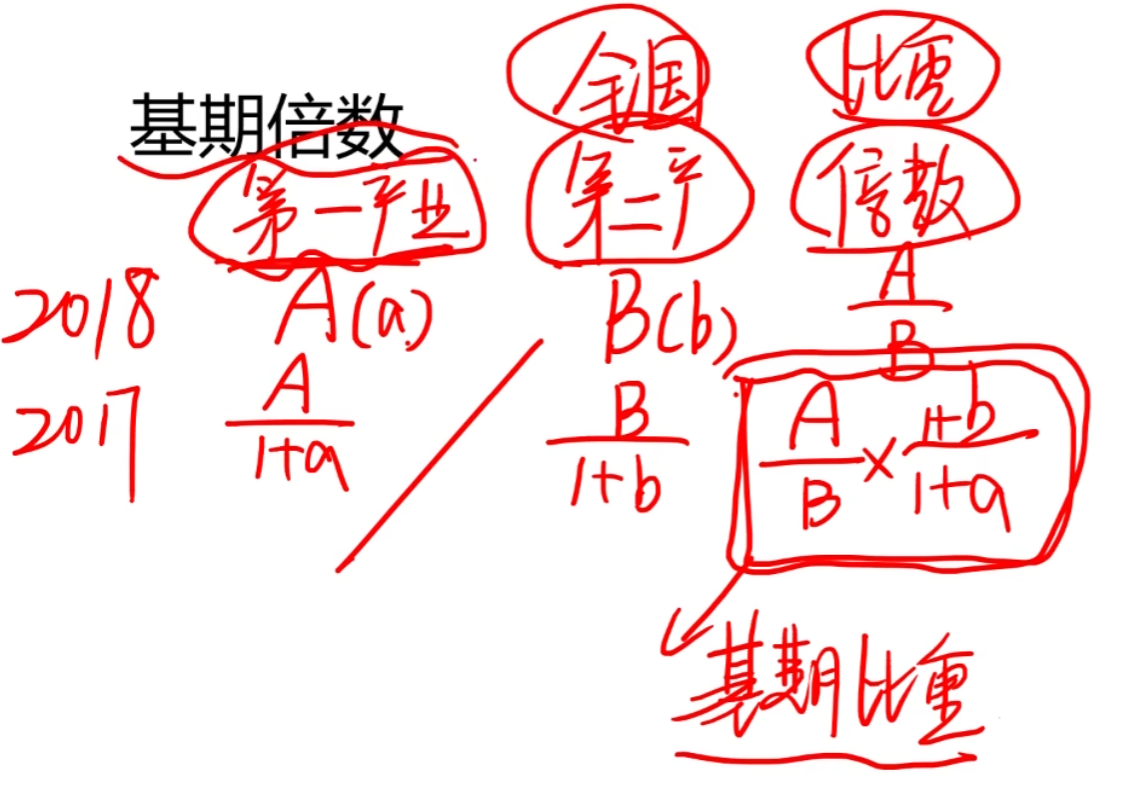 全国 比重
基期倍数
第一产业 第二产 倍数
2018 A(a) B(b) A/B
2017 A/(1+a) B/(1+b) A/B×(1+b)/(1+a)
基期比重